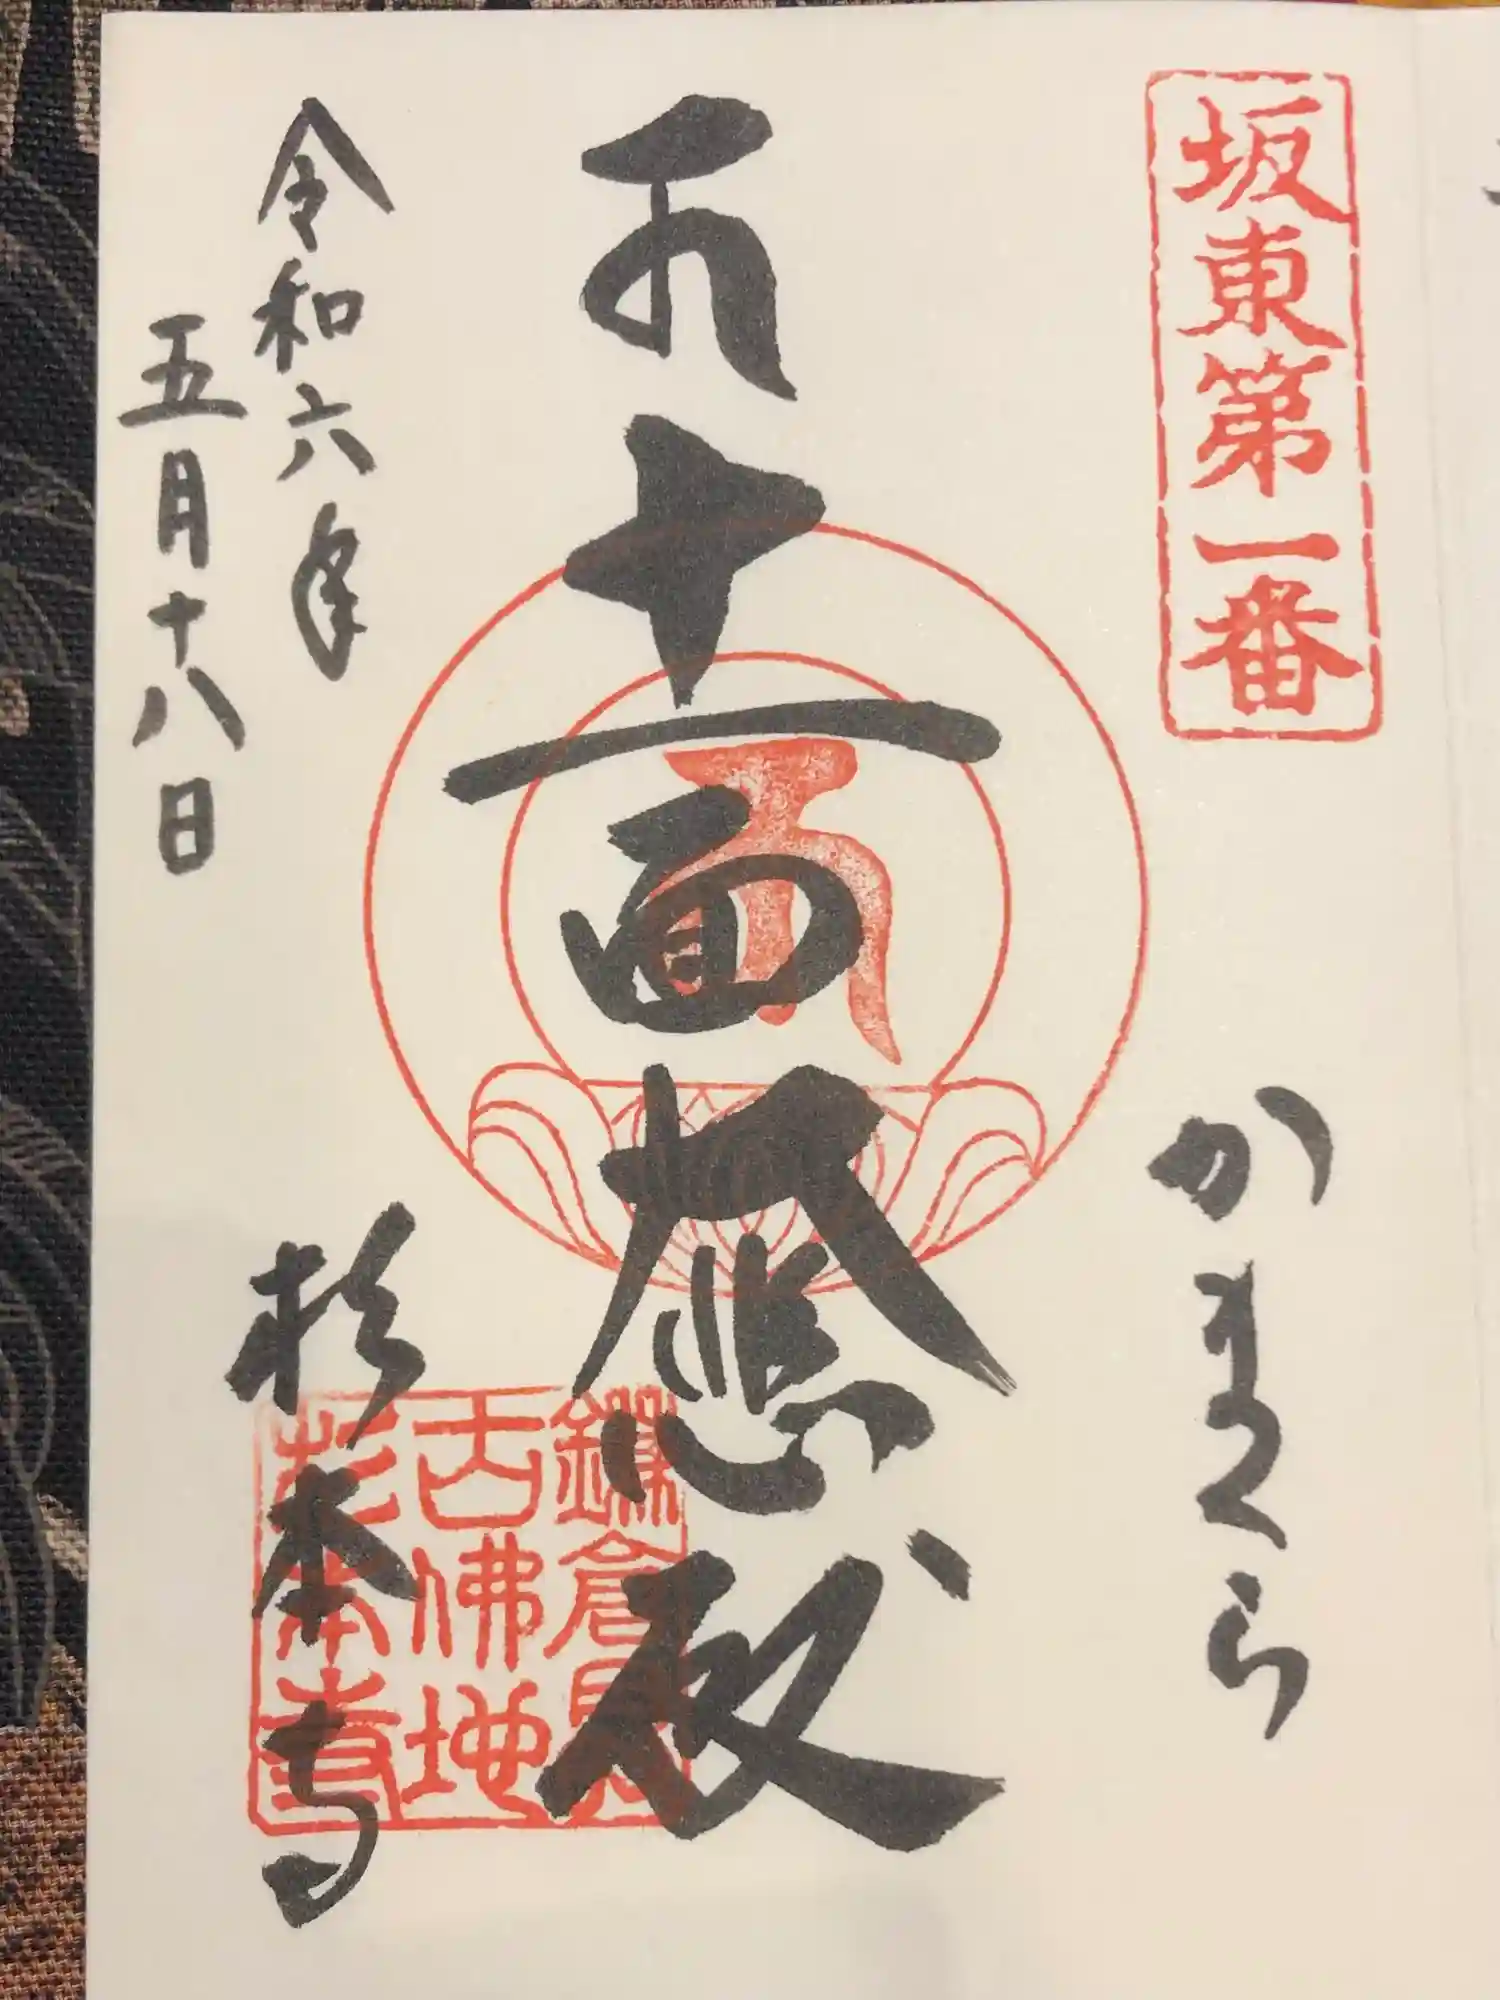 坂東第一番
かまくら
十一面大悲殿
鎌倉
古佛地
杉本寺
杉本寺
令和六年
五月十八日